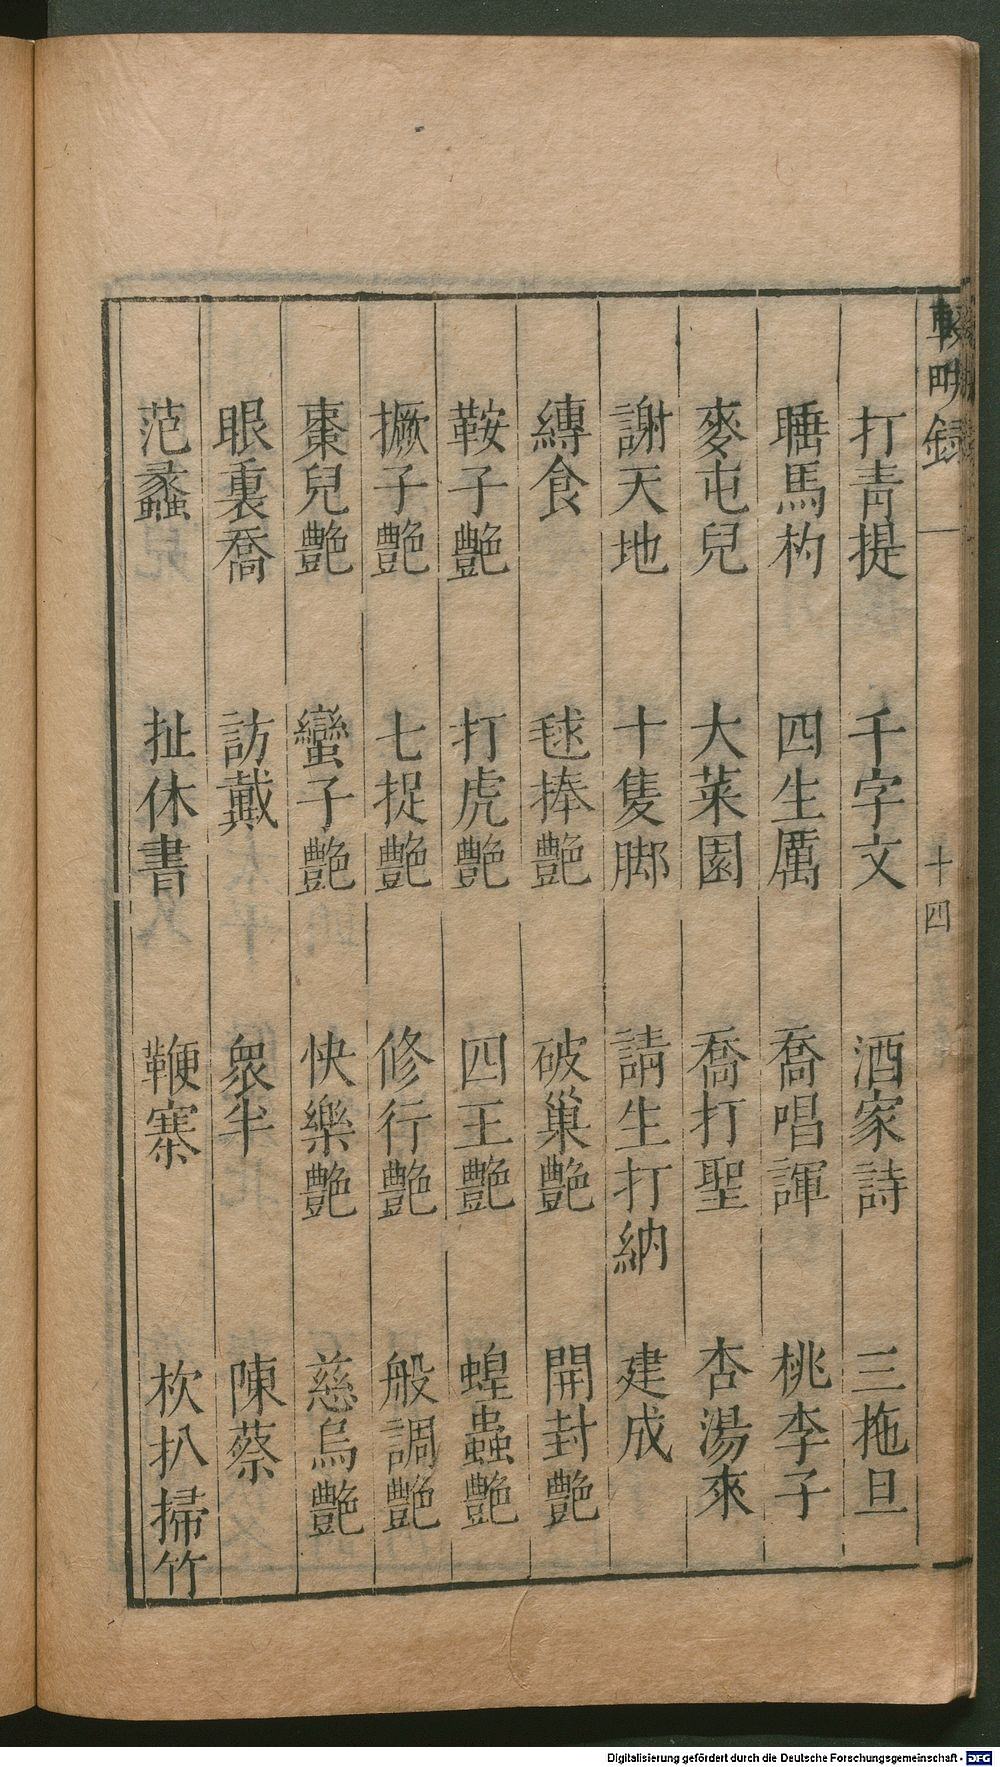 輟畊録
十四
打青提 千字文 酒家詩 三拖旦
睡馬杓 四生厲 喬唱諢 桃李子
麥屯兒 大菜園 喬打聖 杏湯來
謝天地 十隻脚 請生打納 建成
縛食 毬捧艷 破巢艷 開封艷
鞍子艷 打虎艷 四王艷 蝗蟲艷
撅子艷 七捉艷 修行艷 般調艷
棗兒艷 蠻子艷 快樂艷 慈烏艷
眼裏喬 訪戴 衆半 陳蔡
范蠡 扯休書 鞭寨 杴扒掃竹
Digitalisierung gefördert durch die Deutsche Forschungsgemeinschaft - DFG